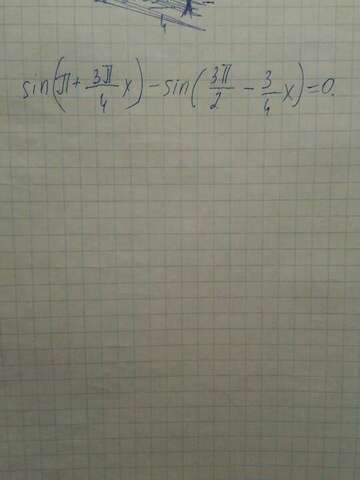 sin(π + 3π/4 x) - sin(3π/2 - 3/4 x) = 0.